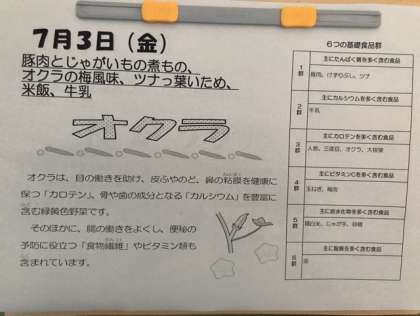 7月3日（金）
豚肉とじゃがいもの煮もの、
オクラの梅風味、ツナっ葉いため、
米飯、牛乳
オクラ
オクラは、目の働きを助け、皮ふやのど、鼻の粘膜を健康に
保つ「カロテン」、骨や歯の成分となる「カルシウム」を豊富に
含む緑黄色野菜です。
そのほかに、腸の働きをよくし、便秘の
予防に役立つ「食物繊維」やビタミン類も
含まれています。
6つの基礎食品群
1群
主にたんぱく質を多く含む食品
豚肉、けずりぶし、ツナ
2群
主にカルシウムを多く含む食品
牛乳
3群
主にカロテンを多く含む食品
人参、三度豆、オクラ、大根葉
4群
主にビタミンCを多く含む食品
玉ねぎ、梅肉
5群
主に炭水化物を多く含む食品
精白米、じゃが芋、砂糖
6群
主に脂質を多く含む食品
油